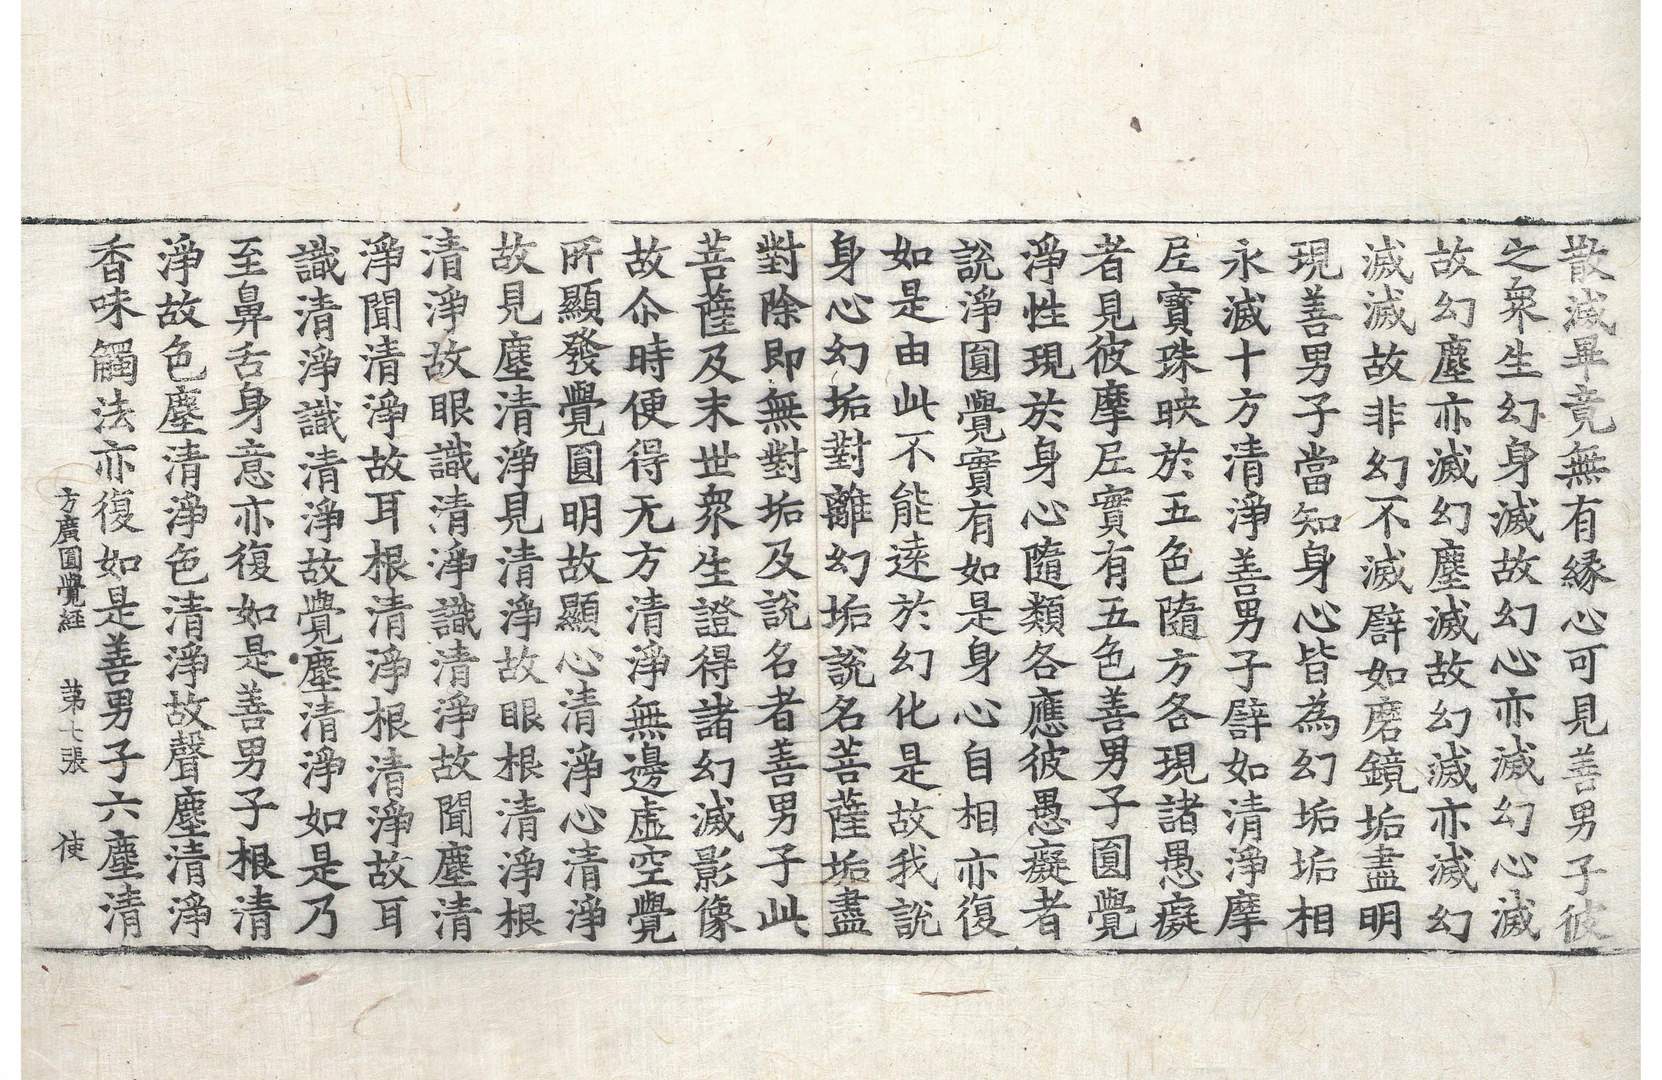 散滅畢竟無有緣心可見善男子彼
之衆生幻身滅故幻心亦滅幻心滅
故幻塵亦滅幻塵滅故幻滅亦滅幻
滅滅故非幻不滅譬如磨鏡垢盡明
現善男子當知身心皆為幻垢垢相
永滅十方清淨善男子譬如清淨摩
尼寶珠映於五色隨方各現諸愚癡
者見彼摩尼實有五色善男子圎覺
淨性現於身心隨類各應彼愚癡者
說淨圎覺實有如是身心自相亦復
如是由此不能遠於幻化是故我說
身心幻垢對離幻垢說名菩薩垢盡
對除即無對垢及說名者善男子此
菩薩及末世衆生證得諸幻滅影像
故尒時便得无方清淨無邊虛空覺
所顯發覺圓明故顯心清淨心清淨
故見塵清淨見清淨故眼根清淨根
清淨故眼識清淨識清淨故聞塵清
淨聞清淨故耳根清淨根清淨故耳
識清淨識清淨故覺塵清淨如是乃
至鼻舌身意亦復如是善男子根清
淨故色塵清淨色清淨故聲塵清淨
香味觸法亦復如是善男子六塵清
方廣圎覺経　苐七張　使